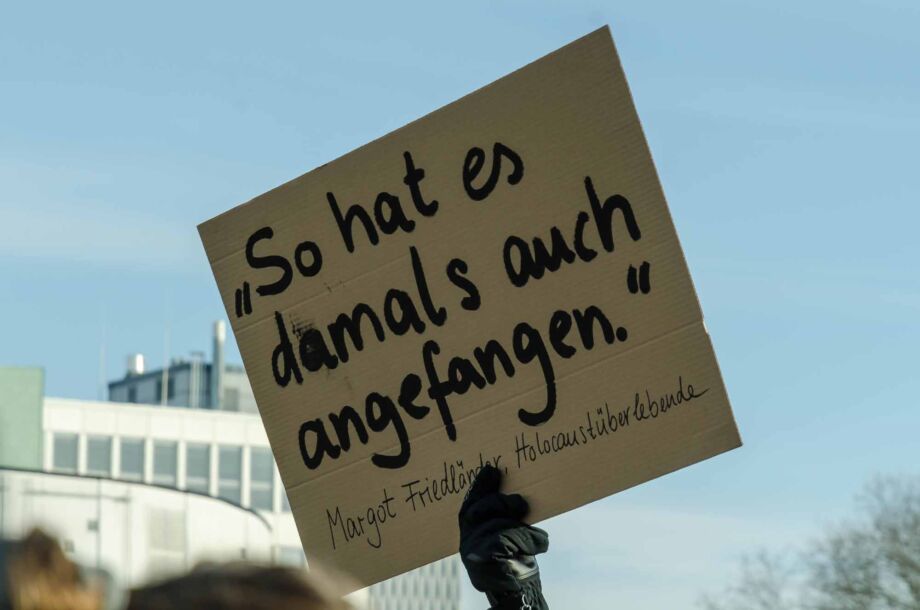 „So hat es
damals auch
angefangen.“
Margot Friedländer, Holocaustüberlebende